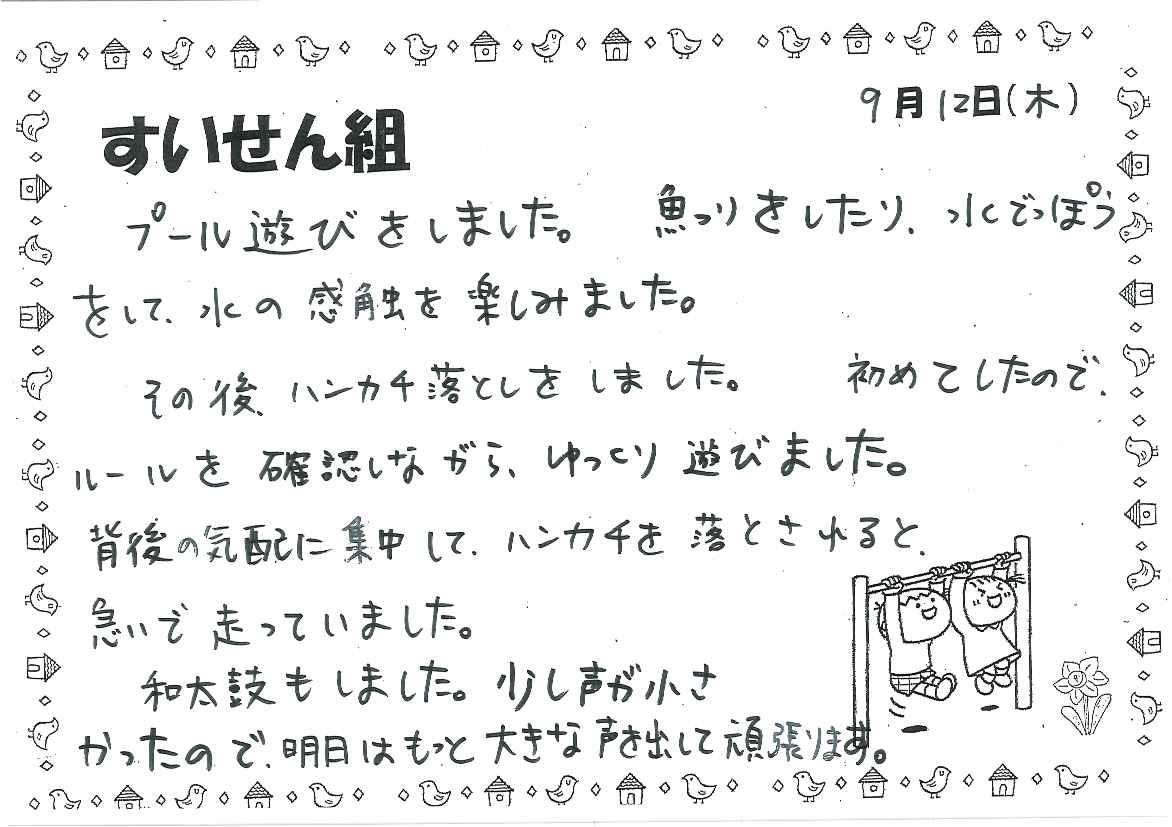 9月12日(木)
すいせん組
プール遊びをしました。 魚つりをしたり、水でっぽう
をして、水の感触を楽しみました。
その後、ハンカチ落としをしました。 初めてしたので、
ルールを確認しながら、ゆっくり遊びました。
背後の気配に集中して、ハンカチを落とされると、
急いで走っていました。
和太鼓もしました。少し声が小さ
かったので、明日はもっと大きな声を出して頑張ります。